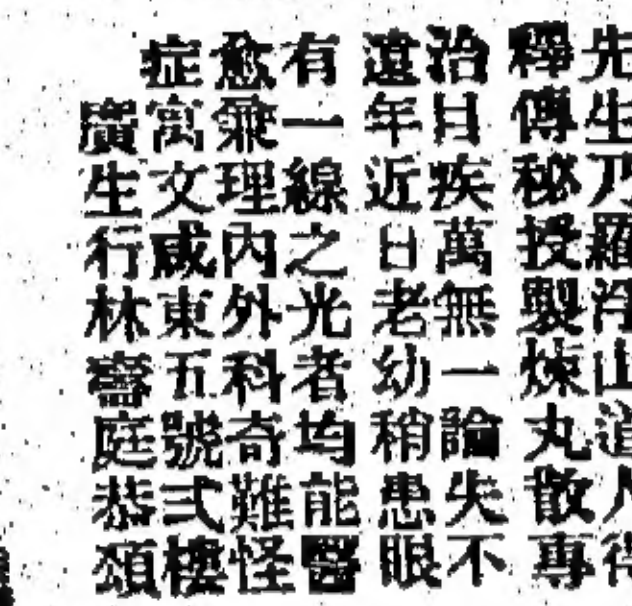 先生乃羅浮山道人得
釋傳秘授製煉丸散專
治目疾萬無一論失不
遠年近日老幼稍患眼
有一線之光者均能醫
愈兼理內外科奇難怪
症寓文咸東五號弍樓
廣生行林庭恭頌